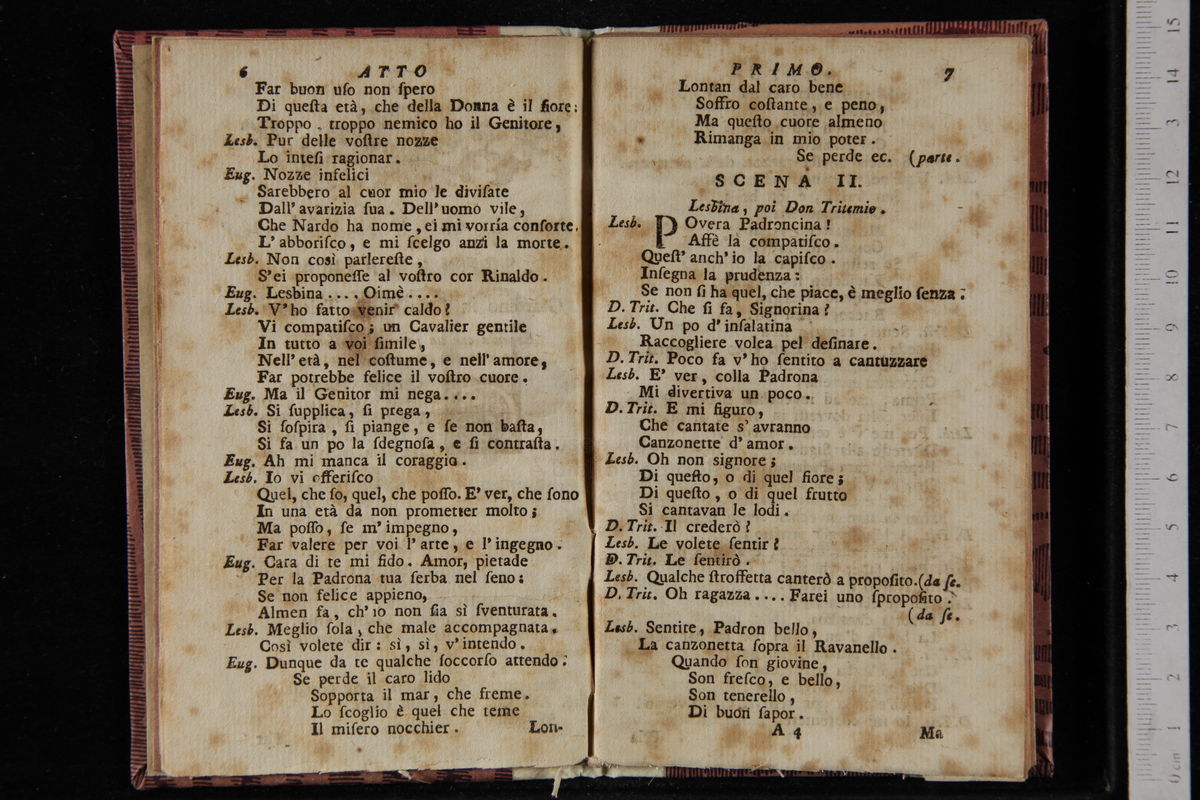 6 ATTO
Far buon uſo non ſpero
Di queſta età, che della Donna è il fiore:
Troppo, troppo nemico ho il Genitore,
Lesb. Pur delle voſtre nozze
Lo inteſi ragionar.
Eug. Nozze infelici
Sarebbero al cuor mio le diviſate
Dall' avarizia ſua. Dell' uomo vile,
Che Nardo ha nome, ei mi vorría conſorte.
L' abboriſco, e mi ſcelgo anzi la morte.
Lesb. Non così parlereſte,
S'ei proponeſſe al voſtro cor Rinaldo.
Eug. Lesbina .... Oimè ....
Lesb. V' ho fatto venir caldo?
Vi compatiſco; un Cavalier gentile
In tutto a voi ſimile,
Nell' età, nel coſtume, e nell' amore,
Far potrebbe felice il voſtro cuore.
Eug. Ma il Genitor mi nega....
Lesb. Si ſupplica, ſi prega,
Si ſoſpira, ſi piange, e ſe non baſta,
Si fa un po la ſdegnoſa, e ſi contraſta.
Eug. Ah mi manca il coraggio.
Lesb. Io vi offeriſco
Quel, che ſo, quel, che poſſo. E' ver, che ſono
In una età da non prometter molto;
Ma poſſo, ſe m' impegno,
Far valere per voi l' arte, e l' ingegno.
Eug. Cara di te mi fido. Amor, pietade
Per la Padrona tua ſerba nel ſeno:
Se non felice appieno,
Almen fa, ch' io non ſia sì ſventurata.
Lesb. Meglio ſola, che male accompagnata.
Così volete dir: sì, sì, v' intendo.
Eug. Dunque da te qualche ſoccorſo attendo.
Se perde il caro lido
Sopporta il mar, che freme.
Lo ſcoglio è quel che teme
Il miſero nocchier. Lon-
PRIMO. 7
Lontan dal caro bene
Soffro coſtante, e peno,
Ma queſto cuore almeno
Rimanga in mio poter.
Se perde ec. (parte.
SCENA II.
Lesbina, poi Don Tritemio.
Lesb. POvera Padroncina!
Affè la compatiſco.
Queſt' anch' io la capiſco.
Inſegna la prudenza:
Se non ſi ha quel, che piace, è meglio ſenza.
D. Trit. Che ſi fa, Signorina?
Lesb. Un po d' inſalatina
Raccogliere volea pel deſinare.
D. Trit. Poco fa v' ho ſentito a cantuzzare
Lesb. E' ver, colla Padrona
Mi divertiva un poco.
D. Trit. E mi figuro,
Che cantate s' avranno
Canzonette d' amor.
Lesb. Oh non signore;
Di queſto, o di quel fiore;
Di queſto, o di quel frutto
Si cantavan le lodi.
D. Trit. Il crederò?
Lesb. Le volete ſentir?
D. Trit. Le ſentirò.
Lesb. Qualche ſtroffetta canterò a propoſito. (da ſe.
D. Trit. Oh ragazza .... Farei uno ſpropoſito.
(da ſe.
Lesb. Sentite, Padron bello,
La canzonetta ſopra il Ravanello.
Quando ſon giovine,
Son freſco, e bello,
Son tenerello,
Di buon ſapor.
A 4 Ma